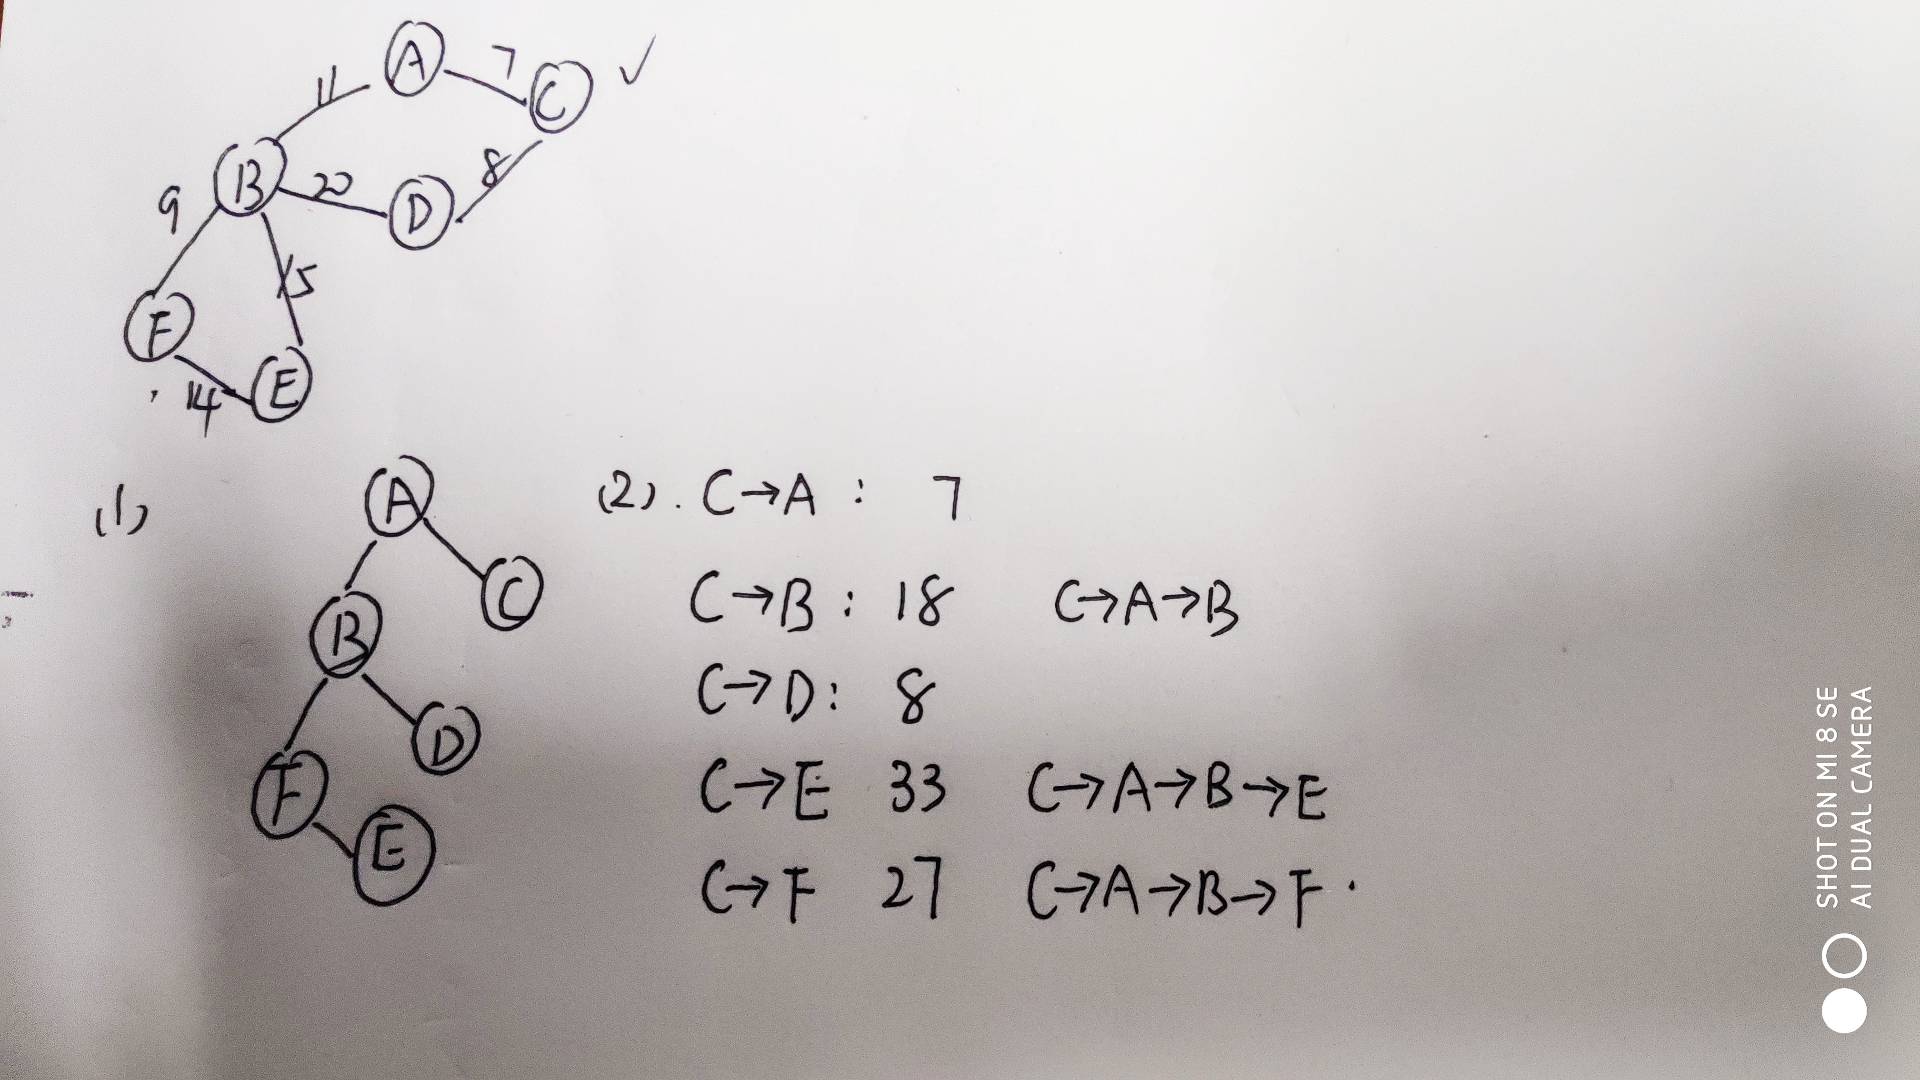 A
11
7
B
C
9
22
8
F
15
D
14
E
(1)
A
B
C
F
D
E
(2). C→A : 7
C→B : 18 C→A→B
C→D: 8
C→E 33 C→A→B→E
C→F 27 C→A→B→F.
SHOT ON MI 8 SE
AI DUAL CAMERA